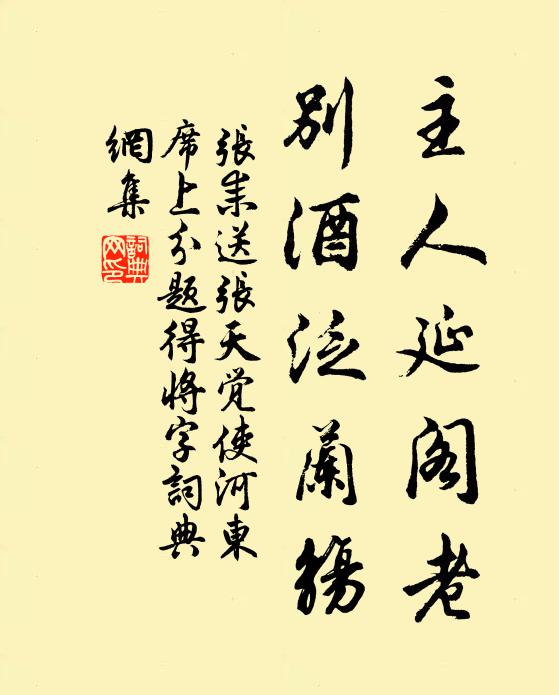 主人延阁老
別酒泛蘭觴
張耒送張天觉使河東
席上分题得将字詞典
網集
詞典網印